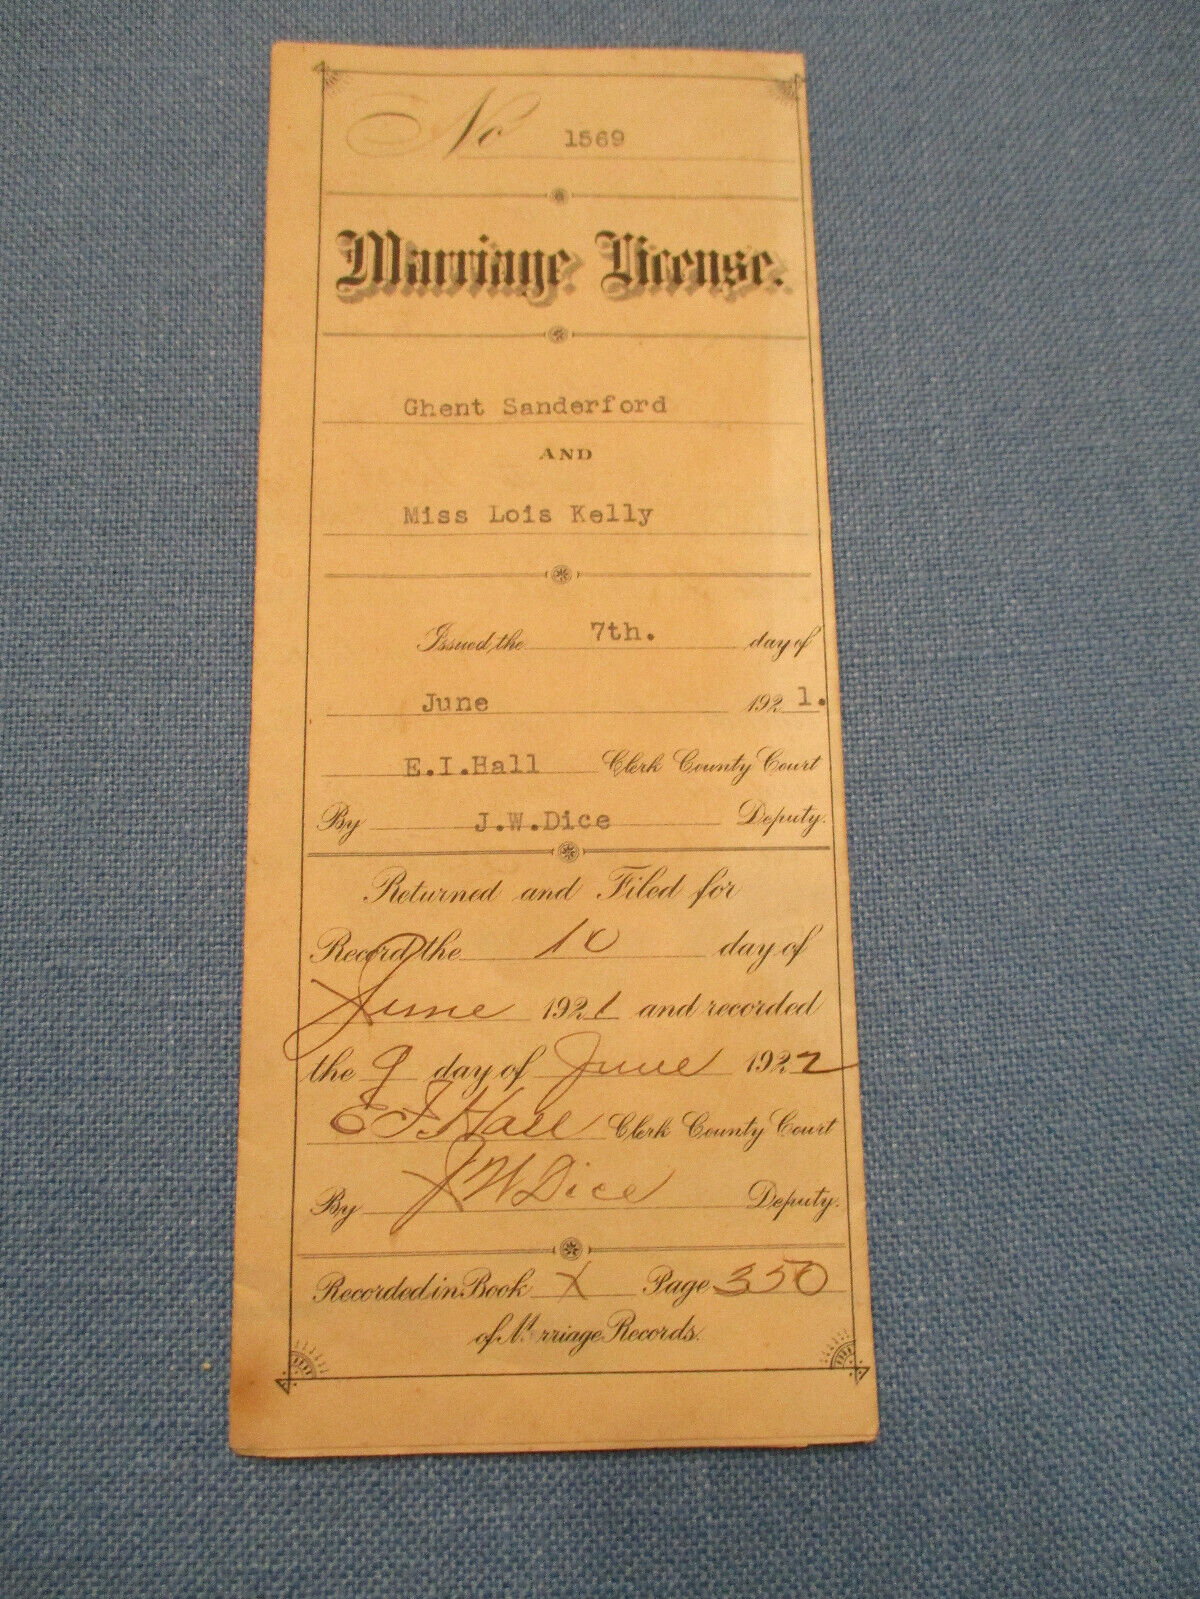 No 1569
Marriage License.
Ghent Sanderford
AND
Miss Lois Kelly
Issued, the 7th. day of
June 192 1.
E.I.Hall Clerk County Court
By J.W.Dice Deputy.
Returned and Filed for
Record the 10 day of
June 192 1 and recorded
the 9 day of June 192 2
E I Hall Clerk County Court
By J W Dice Deputy.
Recorded in Book X Page 350
of M rriage Records.